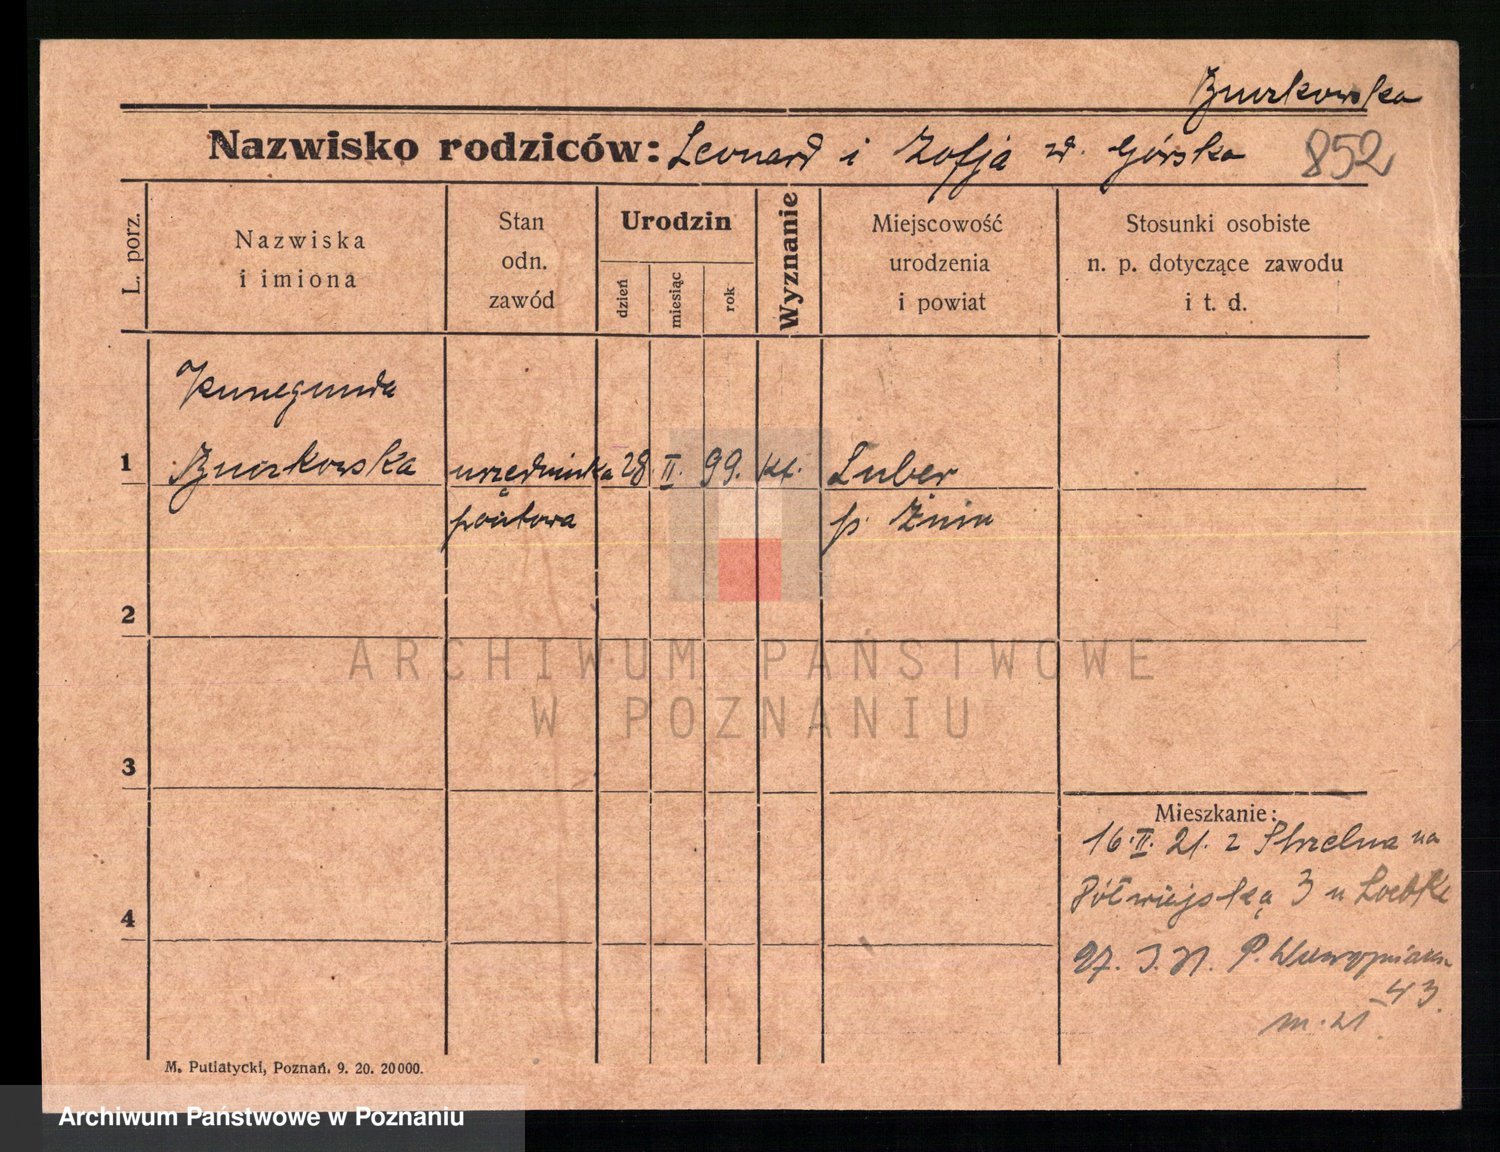 Bnuszkowska
Nazwisko rodziców: Leonard i Zofja zd. Górska 852
L. porz.
Nazwiska
i imiona
Stan
odn.
zawód
Urodzin
dzień
miesiąc
rok
Wyznanie
Miejscowość
urodzenia
i powiat
Stosunki osobiste
n. p. dotyczące zawodu
i t. d.
Kunegunda
1 urzędniczka 28. II. 99. kt. Luber
pocztowa p. Żnin
2
ARCHIWUM PAŃSTWOWE
W POZNANIU
3
Mieszkanie:
16. II. 21. z Strzelna na
Półwiejską 3 u
4
27. P.
43
m. 21
M. Putiatycki, Poznań. 9. 20. 20000.
Archiwum Państwowe w Poznaniu